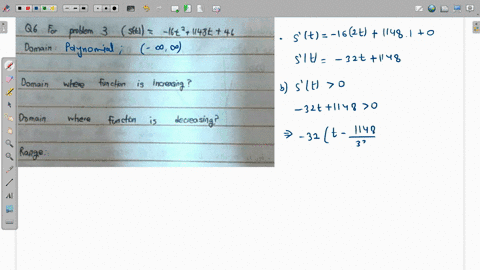 Q6 For problem 3 (s(t) = -16t² + 1148t + 46
Domain: Polynomial, (-∞, ∞)
Domain where functon is Increasing?
Domain where functon is decreasing?
Range:
. s'(t) = -16(2t) + 1148.1 + 0
s'(t) = -32t + 1148
b) s'(t) > 0
-32t + 1148 > 0
⇒ -32 ( t - 1148/32